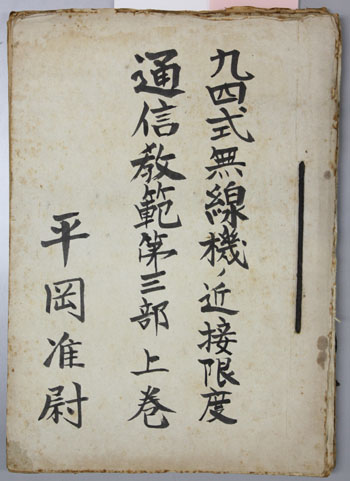 九四式無線機ノ近接限度
通信教範第三部 上巻
平岡准尉